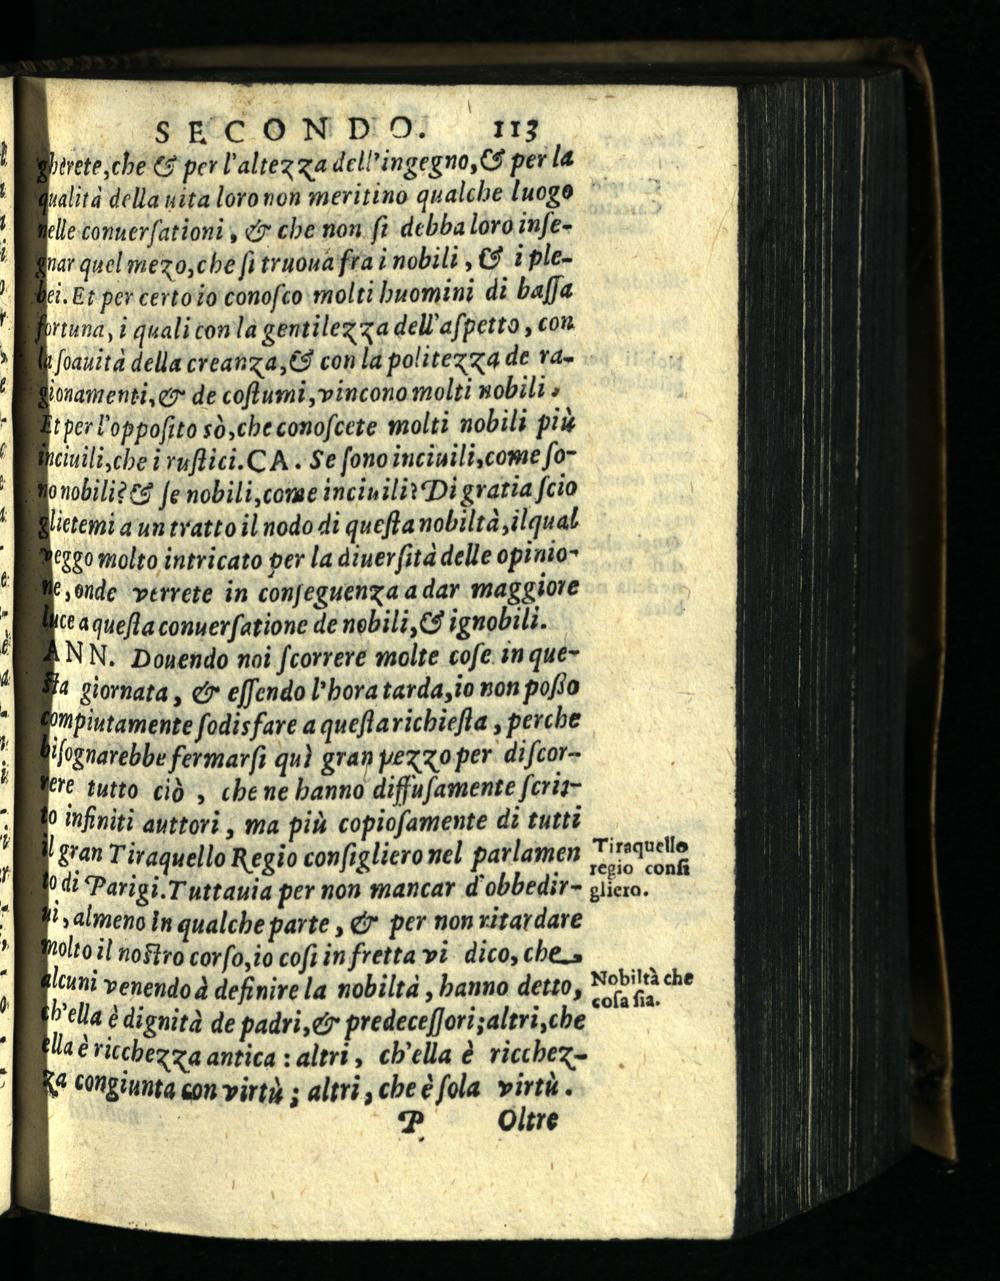 SECONDO. 113
gherete, che & per l'altezza dell'ingegno, & per la
qualità della uita loro non meritino qualche luogo
nelle conuersationi, & che non si debba loro inse-
gnar quel mezo, che si truoua fra i nobili, & i ple-
bei. Et per certo io conosco molti huomini di bassa
fortuna, i quali con la gentilezza dell'aspetto, con
la soauità della creanza, & con la politezza de ra-
gionamenti, & de costumi, vincono molti nobili.
Et per l'opposito sò, che conoscete molti nobili più
inciuili, che i rustici. CA. Se sono inciuili, come so-
no nobili? & se nobili, come inciuili? Di gratia scio
glietemi a un tratto il nodo di questa nobiltà, il qual
veggo molto intricato per la diuersità delle opinio-
ne, onde verrete in conseguenza a dar maggiore
luce a questa conuersatione de nobili, & ignobili.
ANN. Douendo noi scorrere molte cose in que-
sta giornata, & essendo l'hora tarda, io non posso
compiutamente sodisfare a questa richiesta, perche
bisognarebbe fermarsi quì gran pezzo per discor-
rere tutto ciò, che ne hanno diffusamente scrit-
to infiniti auttori, ma più copiosamente di tutti
il gran Tiraquello Regio consigliero nel parlamen
to di Parigi. Tuttauia per non mancar d'obbedir-
ui, almeno in qualche parte, & per non ritardare
molto il nostro corso, io cosi in fretta vi dico, che
alcuni venendo à definire la nobiltà, hanno detto,
ch'ella è dignità de padri, & predecessori; altri, che
ella è ricchezza antica: altri, ch'ella è ricchez-
za congiunta con virtù; altri, che è sola virtù.
P Oltre
Tiraquello
regio consi
gliero.
Nobiltà che
cosa sia.